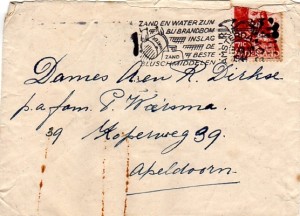 ZAND EN WATER ZIJN
BIJ BRANDBOM
INSLAG
DE
BESTE
BLUSCHMIDDELEN
ZAND
Dames A en R. Dirkse
p.a. fam. P. Wiersma
39 Koperweg 39.
Apeldoorn